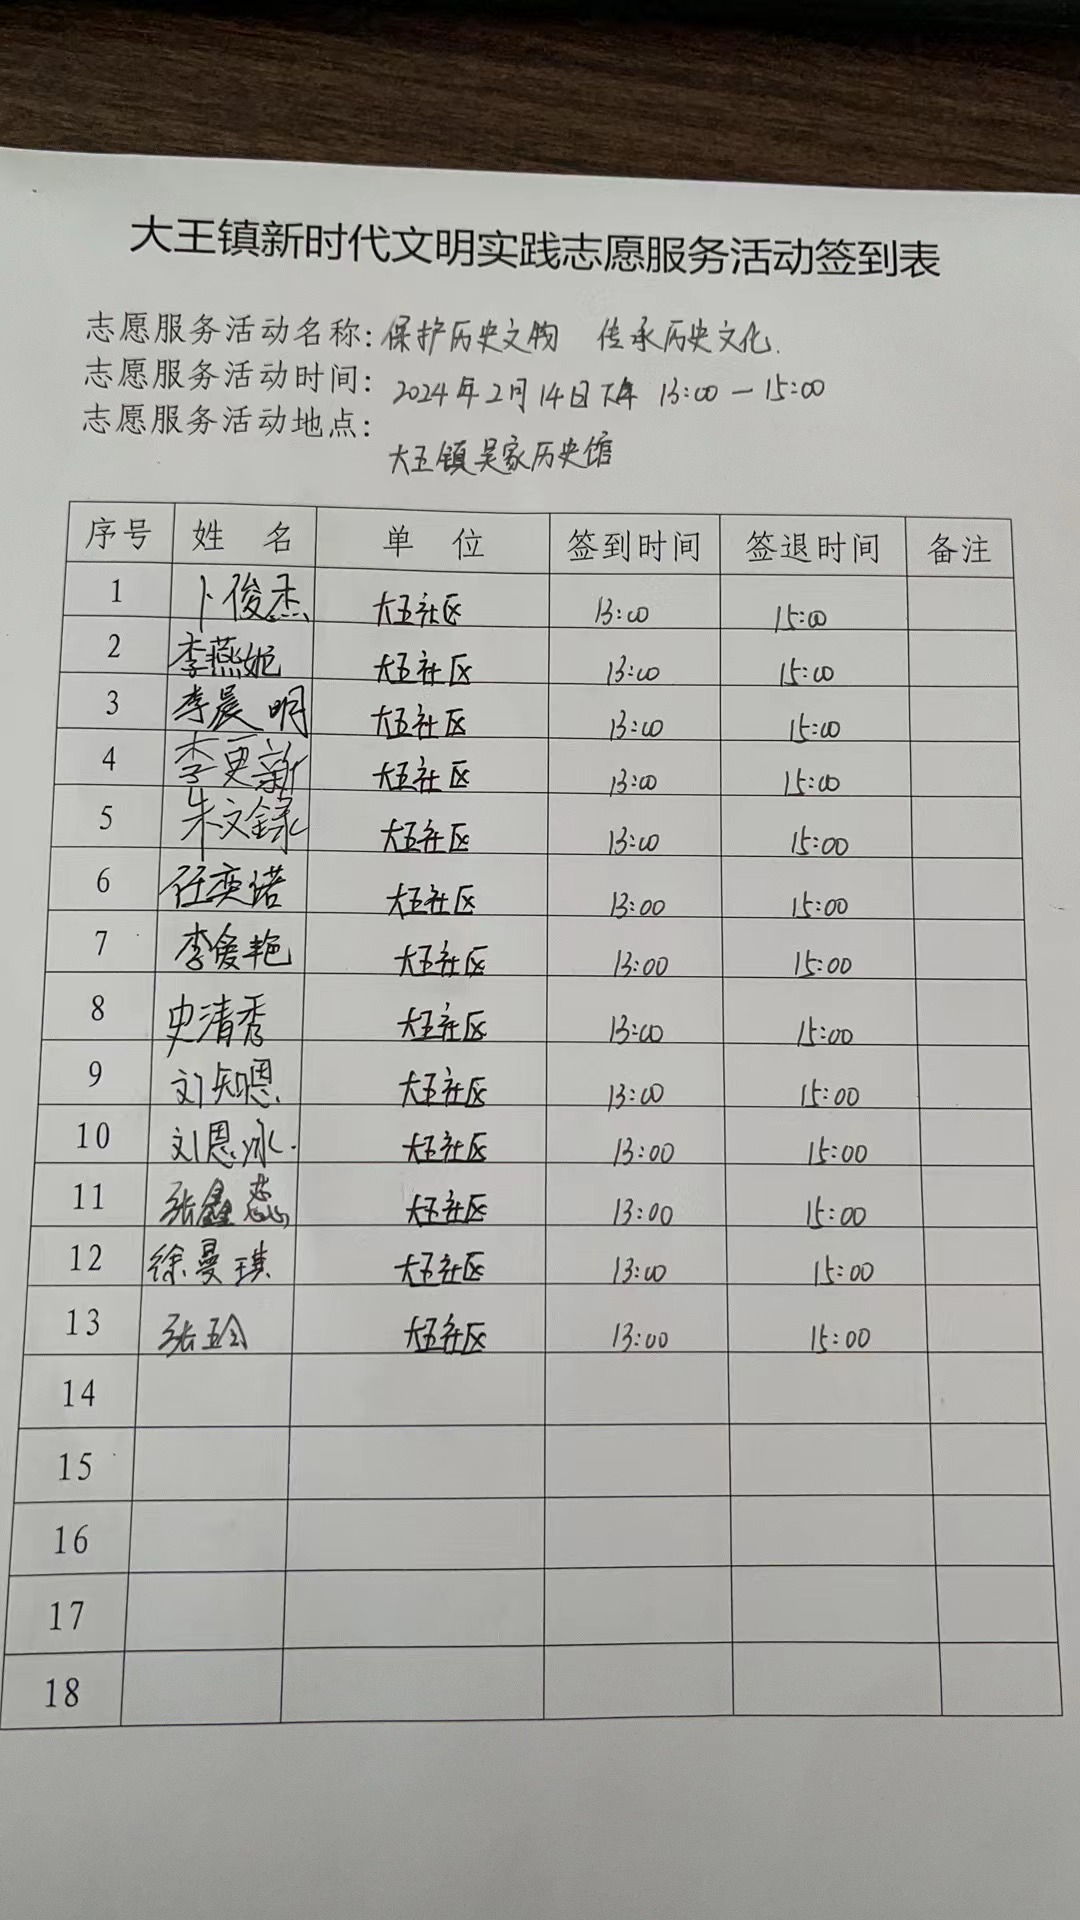 大王镇新时代文明实践志愿服务活动签到表
志愿服务活动名称：保护历史文物 传承历史文化.
志愿服务活动时间：2024年2月14日下午 13:00—15:00
志愿服务活动地点：大王镇吴家历史馆
序号 姓名 单位 签到时间 签退时间 备注
1 卜俊杰 大王社区 13:00 15:00
2 李燕妮 大王社区 13:00 15:00
3 李晨明 大王社区 13:00 15:00
4 李更新 大王社区 13:00 15:00
5 朱文錄 大王社区 13:00 15:00
6 任奕诺 大王社区 13:00 15:00
7 李爱艳 大王社区 13:00 15:00
8 史清秀 大王社区 13:00 15:00
9 刘知恩 大王社区 13:00 15:00
10 刘恩冰. 大王社区 13:00 15:00
11 张鑫蕊 大王社区 13:00 15:00
12 徐曼琪 大王社区 13:00 15:00
13 张玲 大王社区 13:00 15:00
14
15
16
17
18